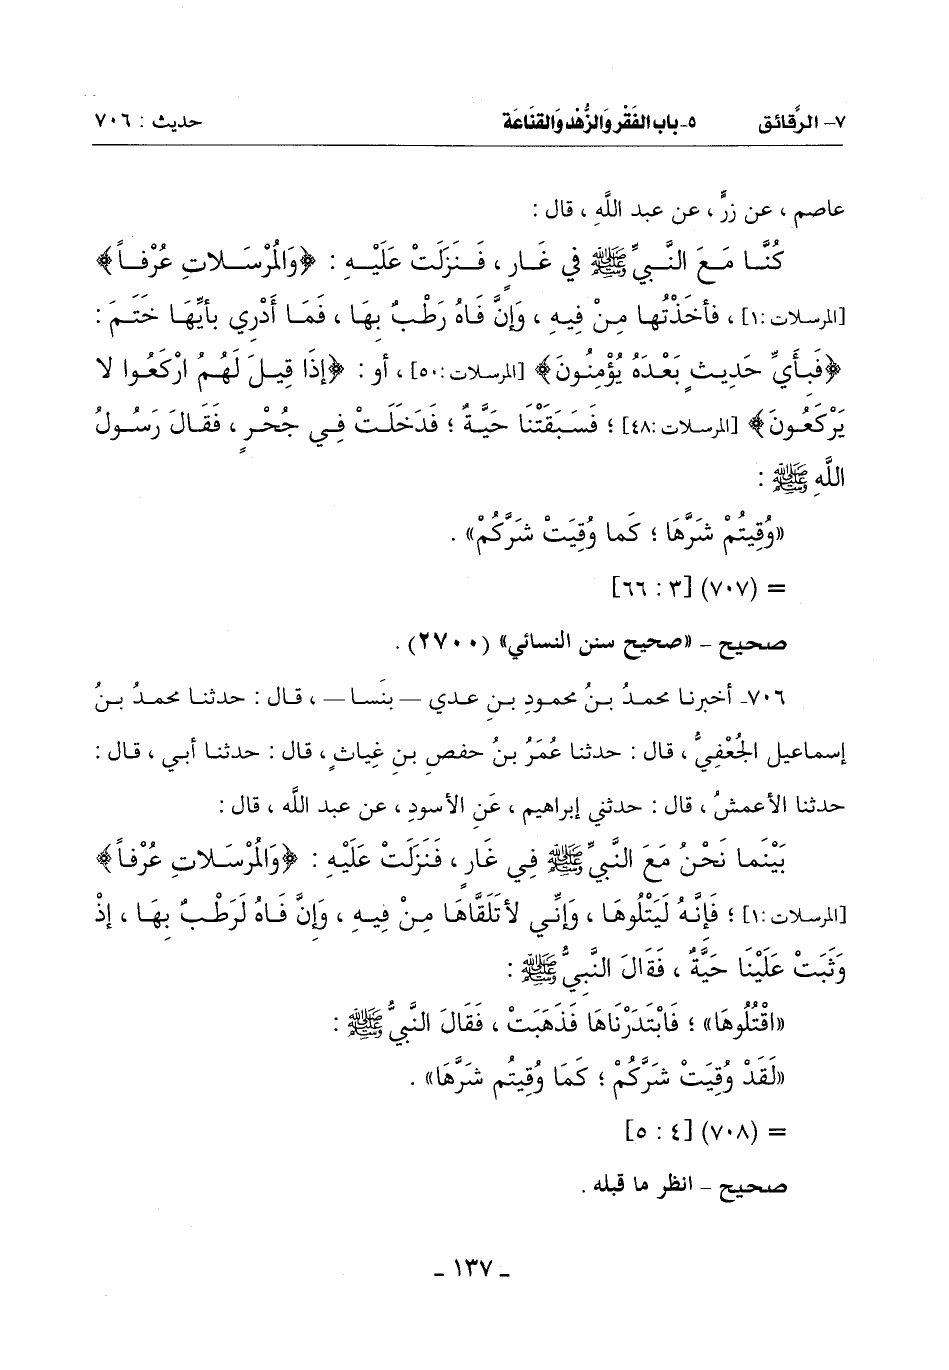 ٧- الرَّقائق ٥-باب الفَقْر وَالزُّهْد وَالقنَاعَة حديث : ٧٠٦
عاصم ، عن زرٍّ ، عن عبد اللَّهِ ، قال :
كُنَّا مَعَ النَّبيِّ ﷺ في غَارٍ ، فَنَزَلَتْ عَلَيْهِ : ﴿وَالْمُرْسَلاتِ عُرْفاً﴾
[المرسلات :١] ، فأخَذْتُها مِنْ فِيهِ ، وَإنَّ فَاهُ رَطْبٌ بِهَا ، فَمَا أَدْرِي بأيِّهَا خَتَمَ :
﴿فَبأيِّ حَدِيثٍ بَعْدَهُ يُؤْمِنُونَ﴾ [المرسلات :٥٠] ، أو : ﴿إذَا قِيلَ لَهُمُ ارْكَعُوا لا
يَرْكَعُونَ﴾ [المرسلات :٤٨] ؛ فَسَبَقَتْنَا حَيَّةٌ ؛ فَدَخَلَتْ فِي جُحْرٍ ، فَقَالَ رَسُولُ
اللَّهِ ﷺ :
«وُقِيتُمْ شَرَّهَا ؛ كَما وُقِيَتْ شَرَّكُمْ» .
= (٧٠٧) [٣ : ٦٦]
صحيح - «صحيح سنن النسائي» (٢٧٠٠) .
٧٠٦- أخبرنا محمدُ بنُ محمودِ بنِ عدي — بنَسا — ، قال : حدثنا محمدُ بنُ
إسماعيل الجُعْفِيُّ ، قال : حدثنا عُمَرُ بنُ حفصِ بنِ غِياثٍ ، قال : حدثنا أبي ، قال :
حدثنا الأعمشُ ، قال : حدثني إبراهيم ، عَنِ الأسودِ ، عن عبد اللَّه ، قال :
بَيْنَما نَحْنُ مَعَ النَّبيِّ ﷺ فِي غَارٍ ، فَنَزَلَتْ عَلَيْهِ : ﴿وَالْمُرْسَلاتِ عُرْفاً﴾
[المرسلات :١] ؛ فَإنَّهُ لَيَتْلُوهَا ، وَإنِّي لأتَلَقَّاهَا مِنْ فِيهِ ، وَإنَّ فَاهُ لَرَطْبٌ بِهَا ، إذْ
وَثَبَتْ عَلَيْنَا حَيَّةٌ ، فَقَالَ النَّبيُّ ﷺ :
«اقْتُلُوهَا» ؛ فَابْتَدَرْنَاهَا فَذَهَبَتْ ، فَقَالَ النَّبيُّ ﷺ :
«لَقَدْ وُقِيَتْ شَرَّكُمْ ؛ كَمَا وُقِيتُم شَرَّهَا» .
= (٧٠٨) [٤ : ٥]
صحيح - انظر ما قبله .
- ١٣٧ -